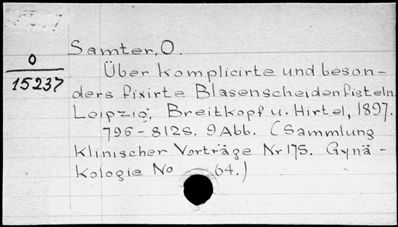 Samter, O.
O
15237
Über komplicirte und beson-
ders fixirte Blasenscheidenfisteln.
Leipzig, Breitkopf u. Hirtel, 1897.
796-812S. 9 Abb. (Sammlung
klinischer Vorträge Nr 175. Gynä-
kologie No 64.)